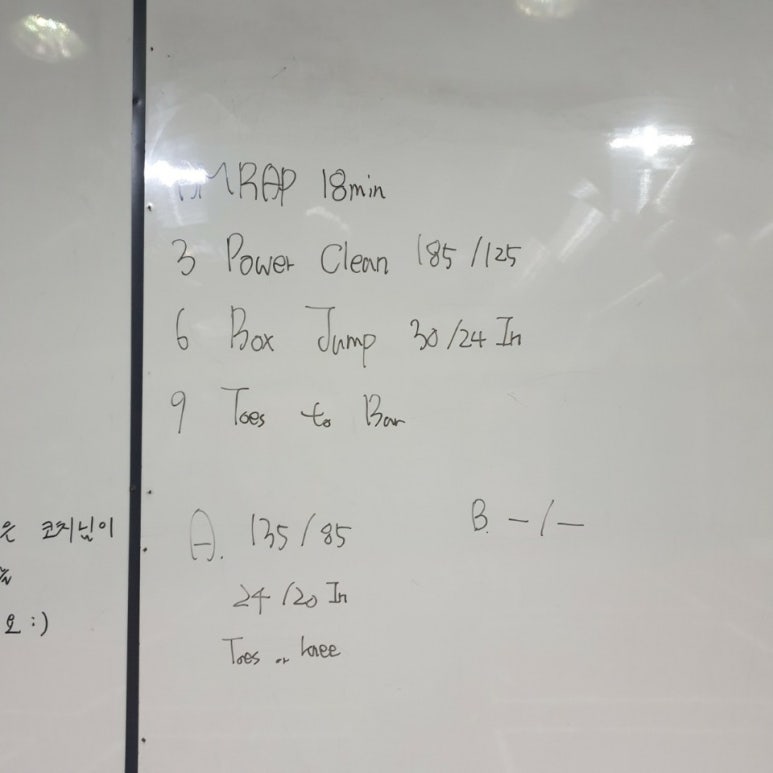 AMRAP 18min
3 Power Clean 185/125
6 Box Jump 30/24 In
9 Toes to Bar
A. 135/85
24/20 In
Toes or knee
B. -/-
은 코치님이
요 :)